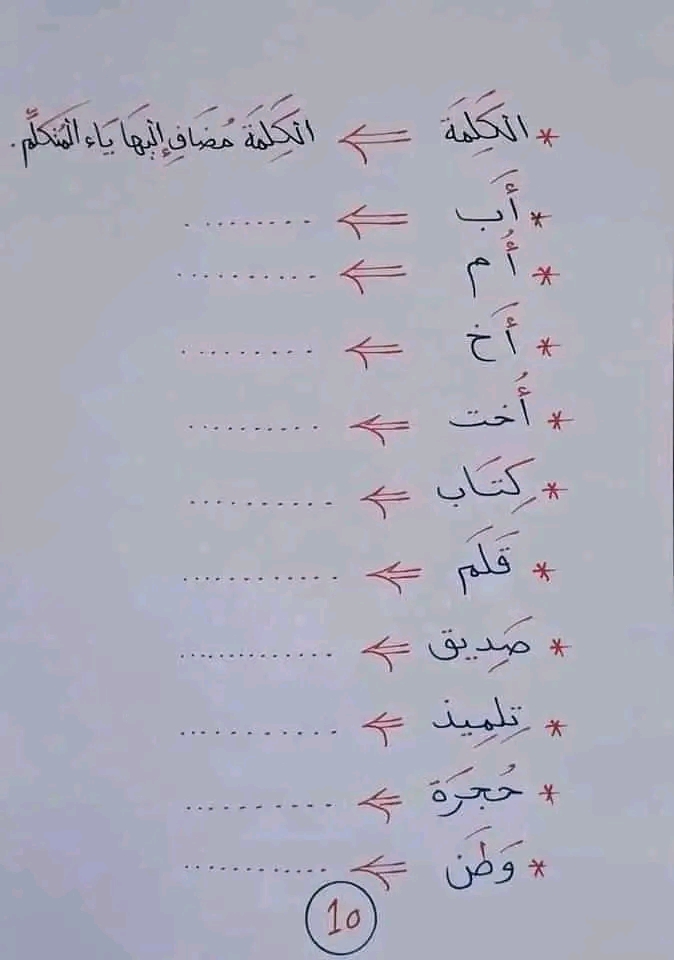 * الكَلِمَة ⇐ الكَلِمَةَ مُضَافِ إِلَيْهَا يَاء المُتَكَلِّم.
* أَب ⇐ ........
* أُم ⇐ ..........
* أَخ ⇐ .........
* أُخت ⇐ .........
* كِتَاب ⇐ ..........
* قَلَم ⇐ ...........
* صَدِيق ⇐ ............
* تِلمِيذ ⇐ ............
* حُجرَة ⇐ ...........
* وَطَن ⇐ ...........
10